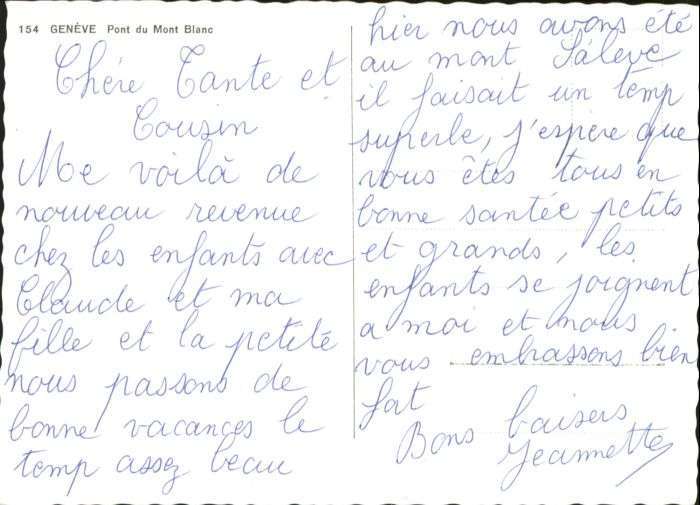 154 GENÈVE Pont du Mont Blanc
Chére Tante et
Cousin
Me voilà de
nouveau revenue
chez les enfants avec
Claude et ma
fille et la petite
nous passons de
bonne vacances le
temp assez beau
hier nous avons été
au mont Salève
il faisait un temp
superbe, j'espère que
vous êtes tous en
bonne santée petits
et grands, les
enfants se joignent
a moi et nous
vous embrassons bien
fat
Bons baisers
Jeannette